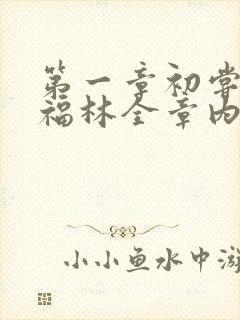 第一章初尝
福林全章内
小小鱼水中游